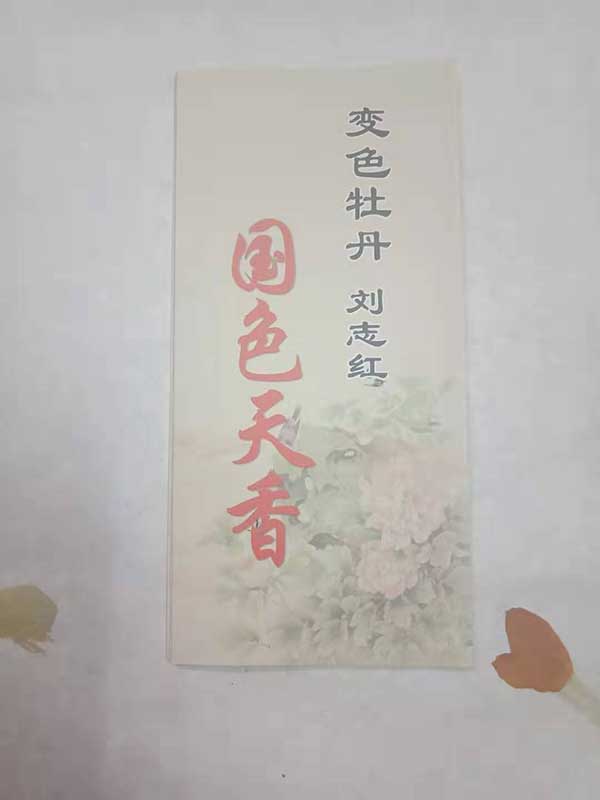 变色牡丹 刘志红
国色天香